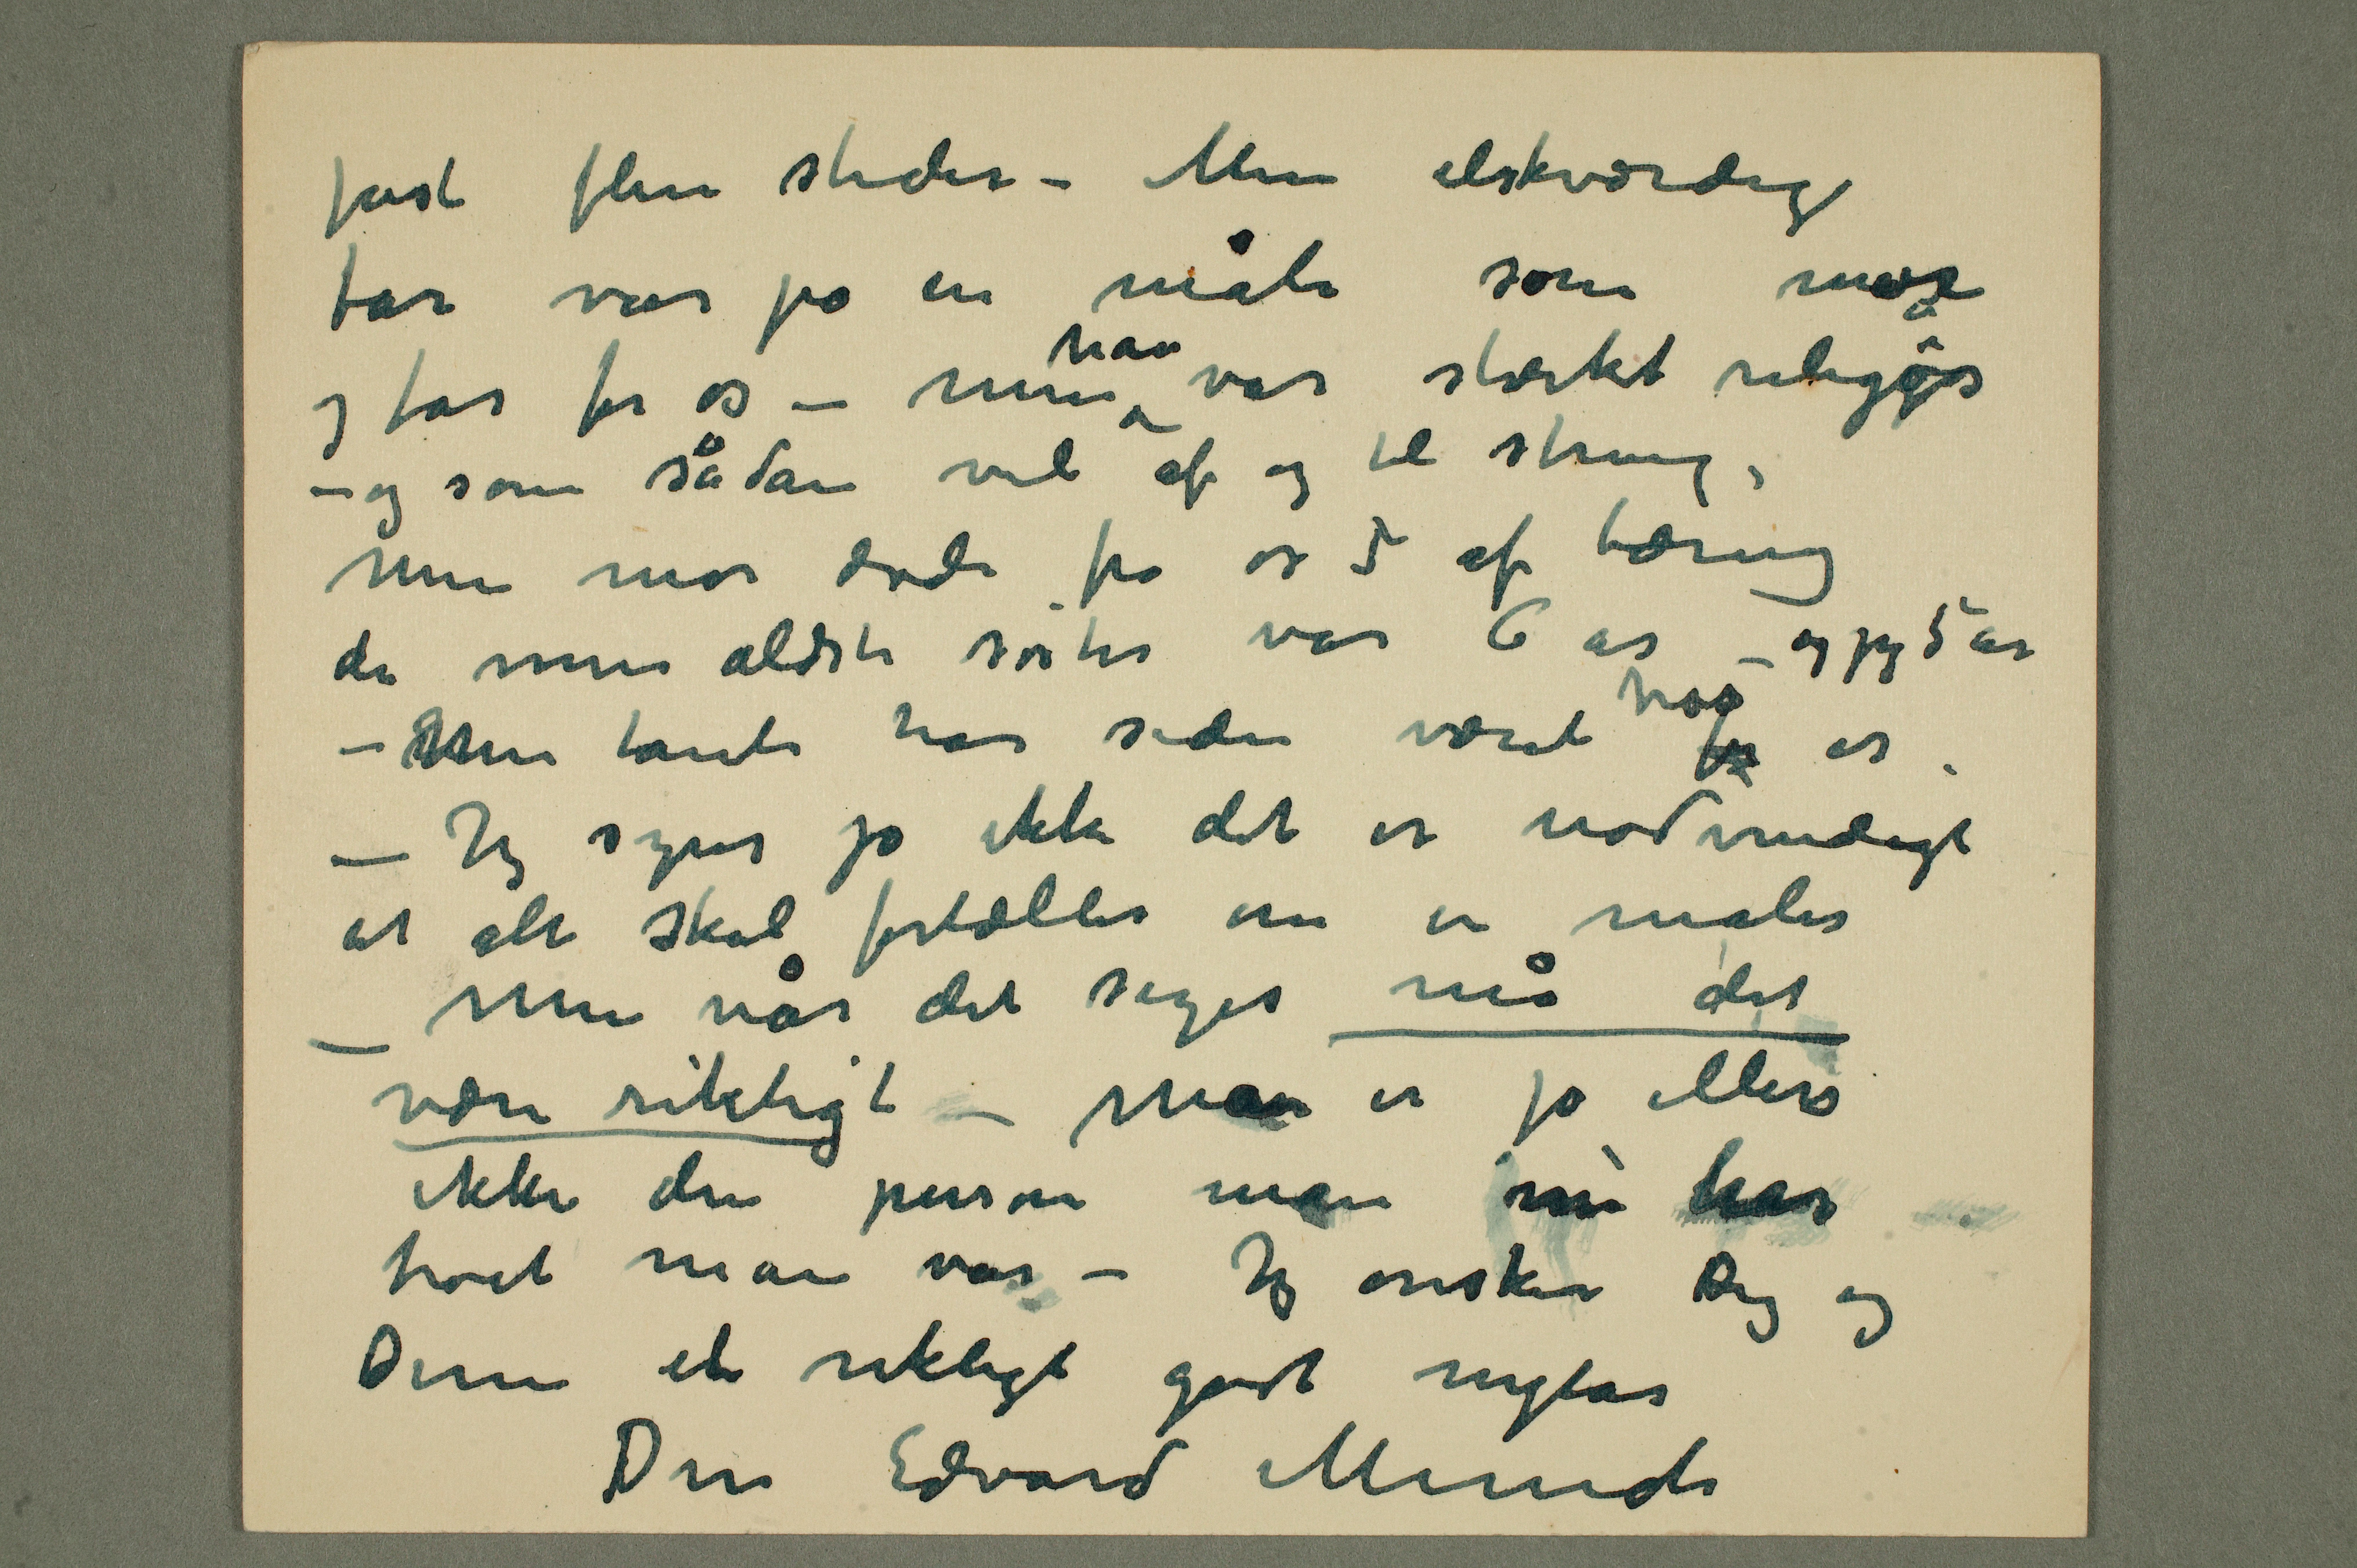 fast flere steder – Min elskværdige
far var på en måte som mor
og far for os – men han var stærkt religiøs
– og som sådan vel af og til streng,
Min mor døde fra os 5 af tæring
da min ældste søster var 6 år – og jeg 5 år
– Min tante har siden været hos os.
– Jeg synes jo ikke det er nødvendigt
at alt skal fortælles om en maler
– Men når det siges må det
være riktigt – Man er jo ellers
ikke den person man nu har
troet man var – Jeg ønsker Dig og
Dine et riktigt godt nytår
Din Edvard Munch